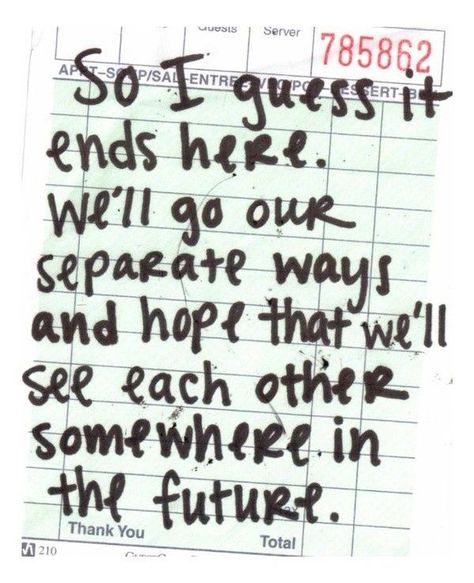 Guests Server 785862
So I guess it
ends here.
We'll go our
separate ways
and hope that we'll
see each other
somewhere in
the future.
Thank You Total
210